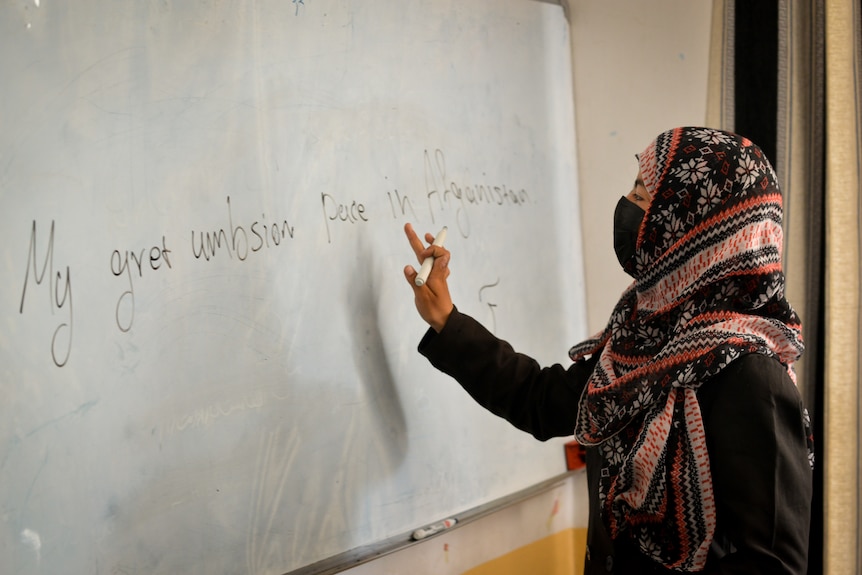 My gret umbsion pace in Afganistan.
F